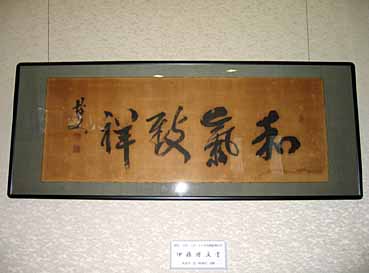 和氣致祥
博文
伊藤博文書